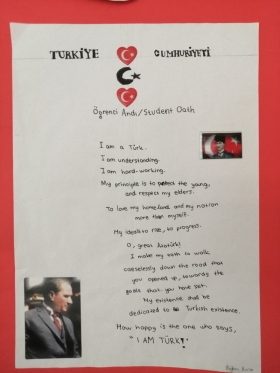 TURKİYE CUMHURİYETİ
Öğrenci Andı/Student Oath
I am a Türk.
I am understanding.
I am hard-working.
My principle is to protect the young,
and respect my elders.
To love my homeland and my nation
more than myself.
My ideal is to rise, to progress.
O, great Atatürk!
I make my oath to walk
ceaselessly down the road that
you opened up, towards the
goals that you have set.
My existence shall be
dedicated to Turkish existence.
How happy is the one who says,
"I AM TÜRK!"